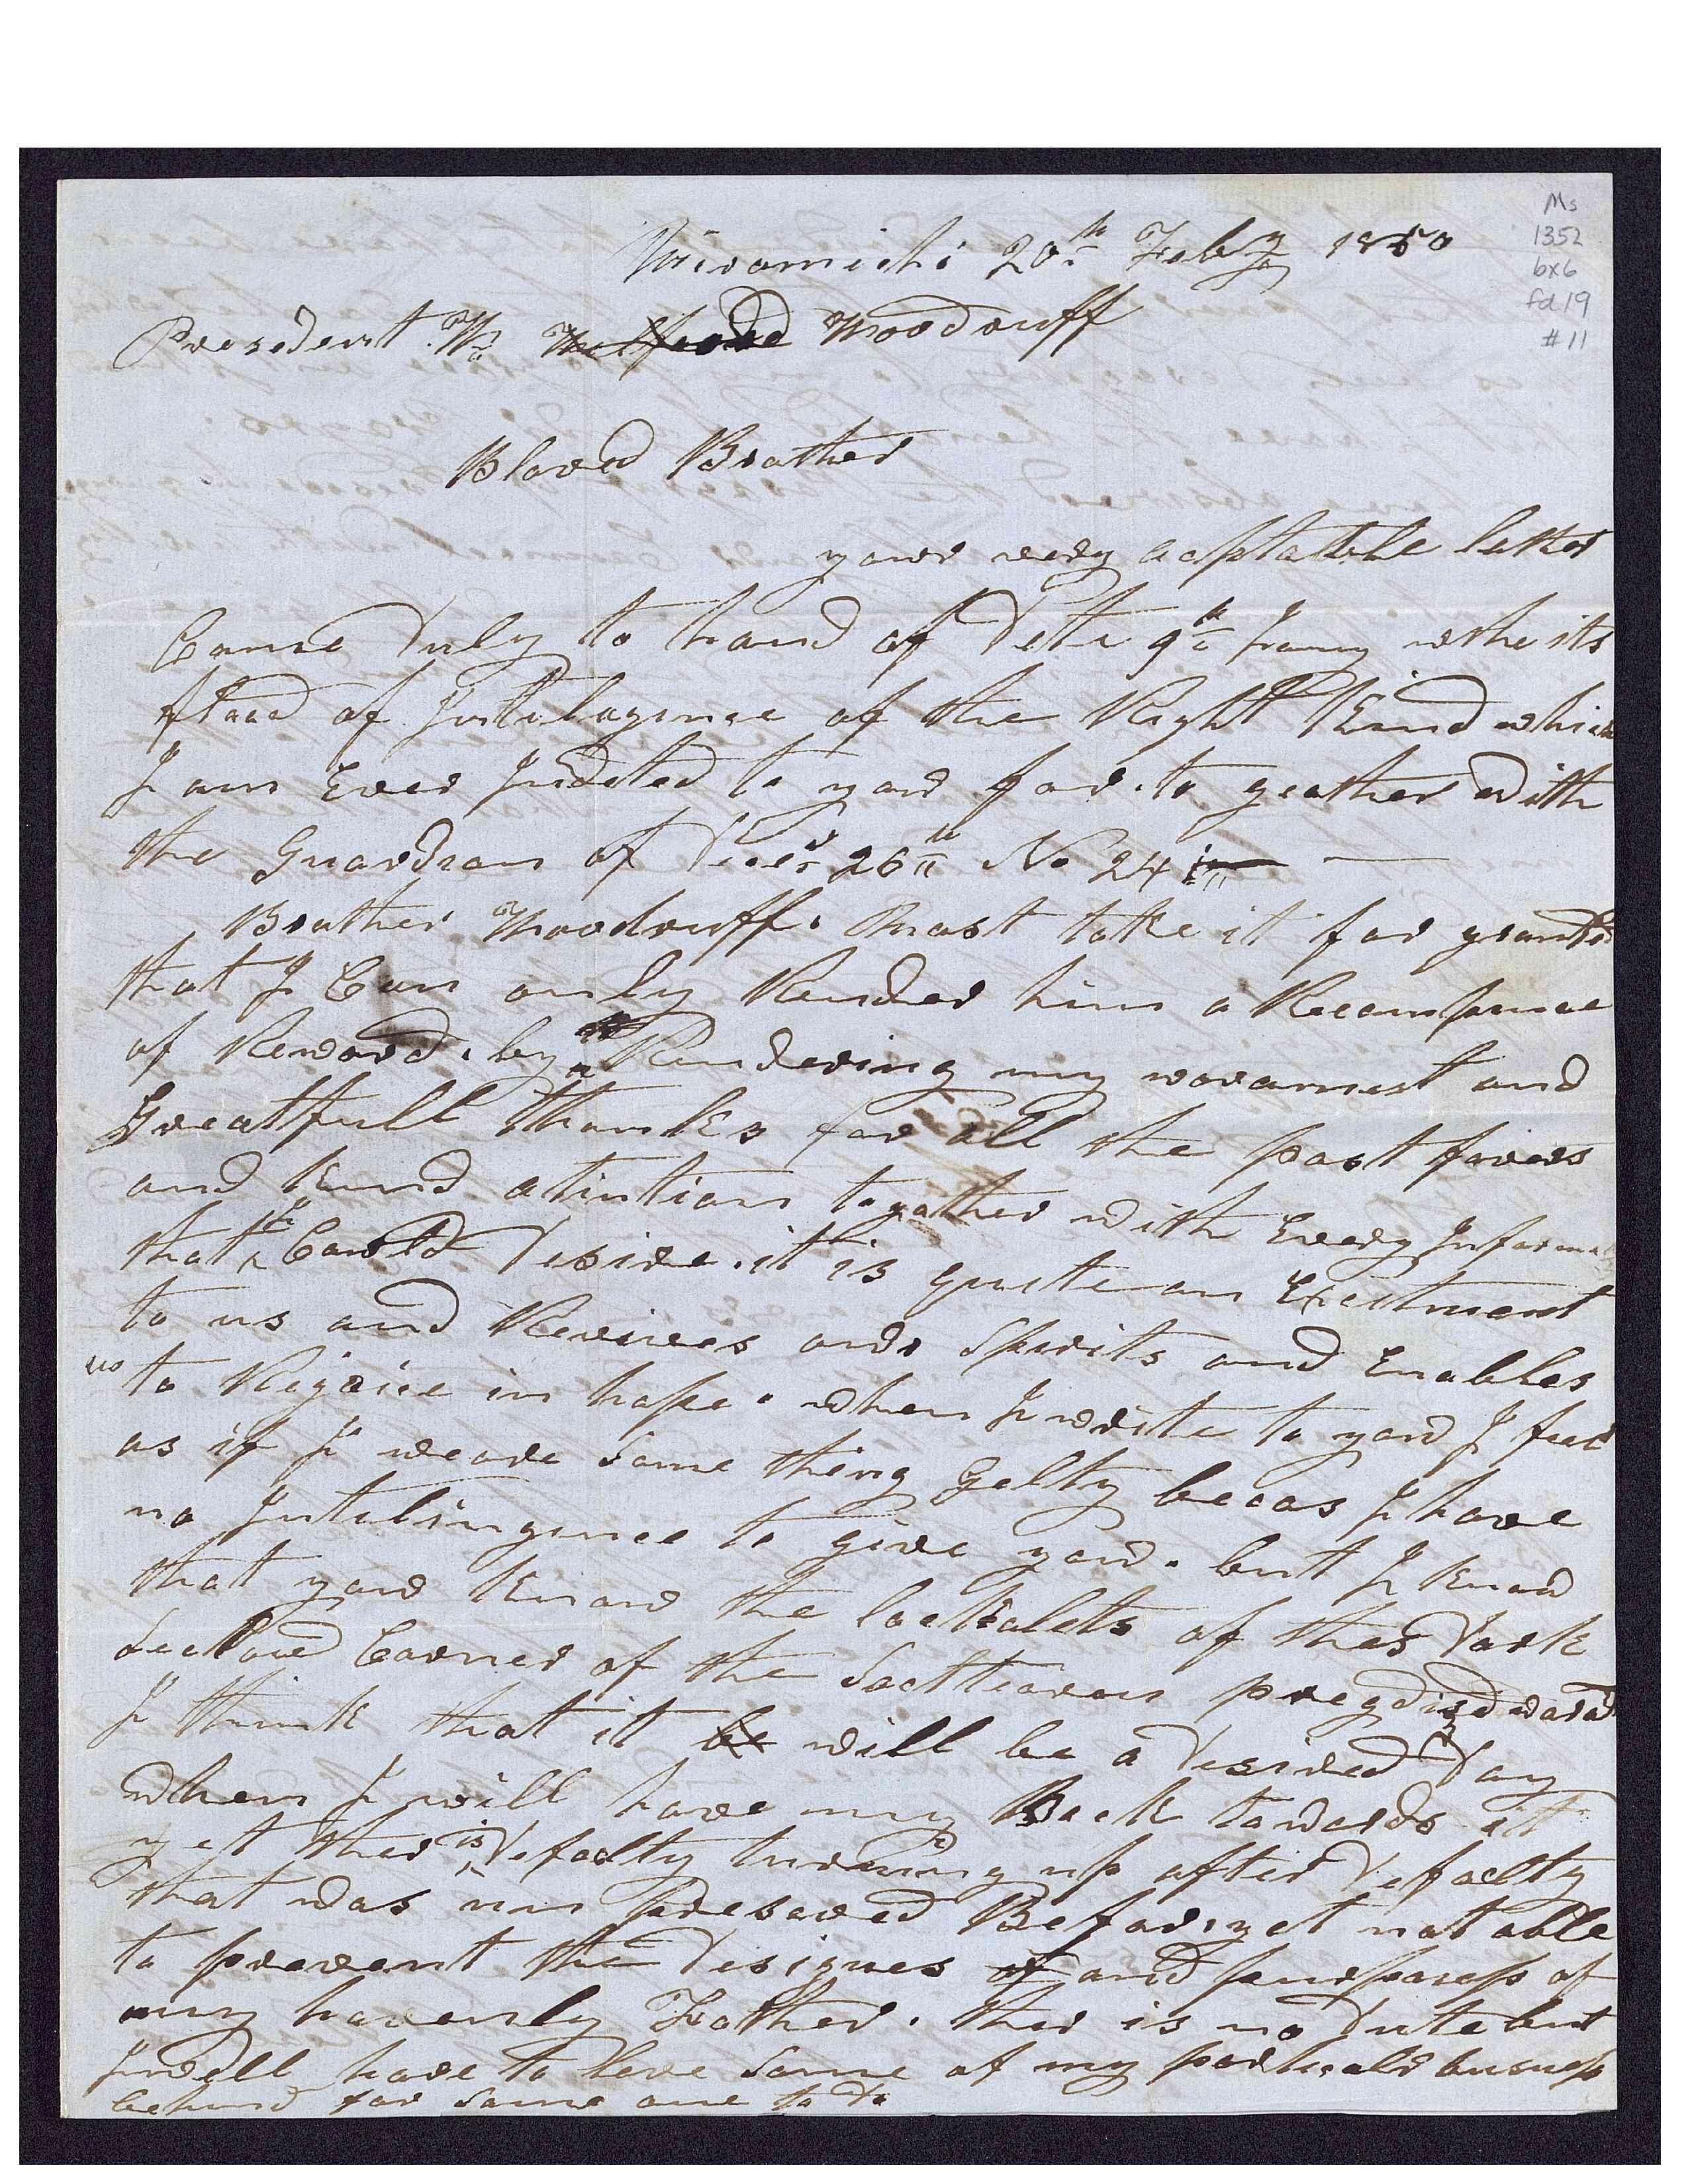 Ms
1352
bx6
fd 19
# 11
Miramichi 20th Feby 1850
President W. Woodruff
Bloved Brother
your very acptable letter
Came duly to hand of Dete 9th Jany withe its
flood of Intilugence of the Right Kind which
I am Ever Indeted to your for. to geather with
the Guardian of Decr 26th No 24
Brother Woodruff. Most take it for granted
that I Can only Render him a Recompence
of Reward. by a Rendering my waramest and
Greatfull thanks for all the past favers
and kind atintion together with Every Informa
that I Could Desire. it is quite an Exitment
to us and Revives our Spirits and Enables
us to Rejoice in hope. when I write to your I feel
as if I weare Some thing Gelty becas I have
no Intilingince to give your. but I know
that your know the lockalets of this Dark
Seclued Corner of the Sactiearen pregdized world
I think that it will be a desired Day
when I will have my Back towards it
yet ther is Defaclty turening up after Defaclty
that was un foresaved Before, yet not able
to prevent the Designes and purposess of
my havenly Father. ther is no Dute but
I well have to leve Some of my busness
behind for Some one to Do